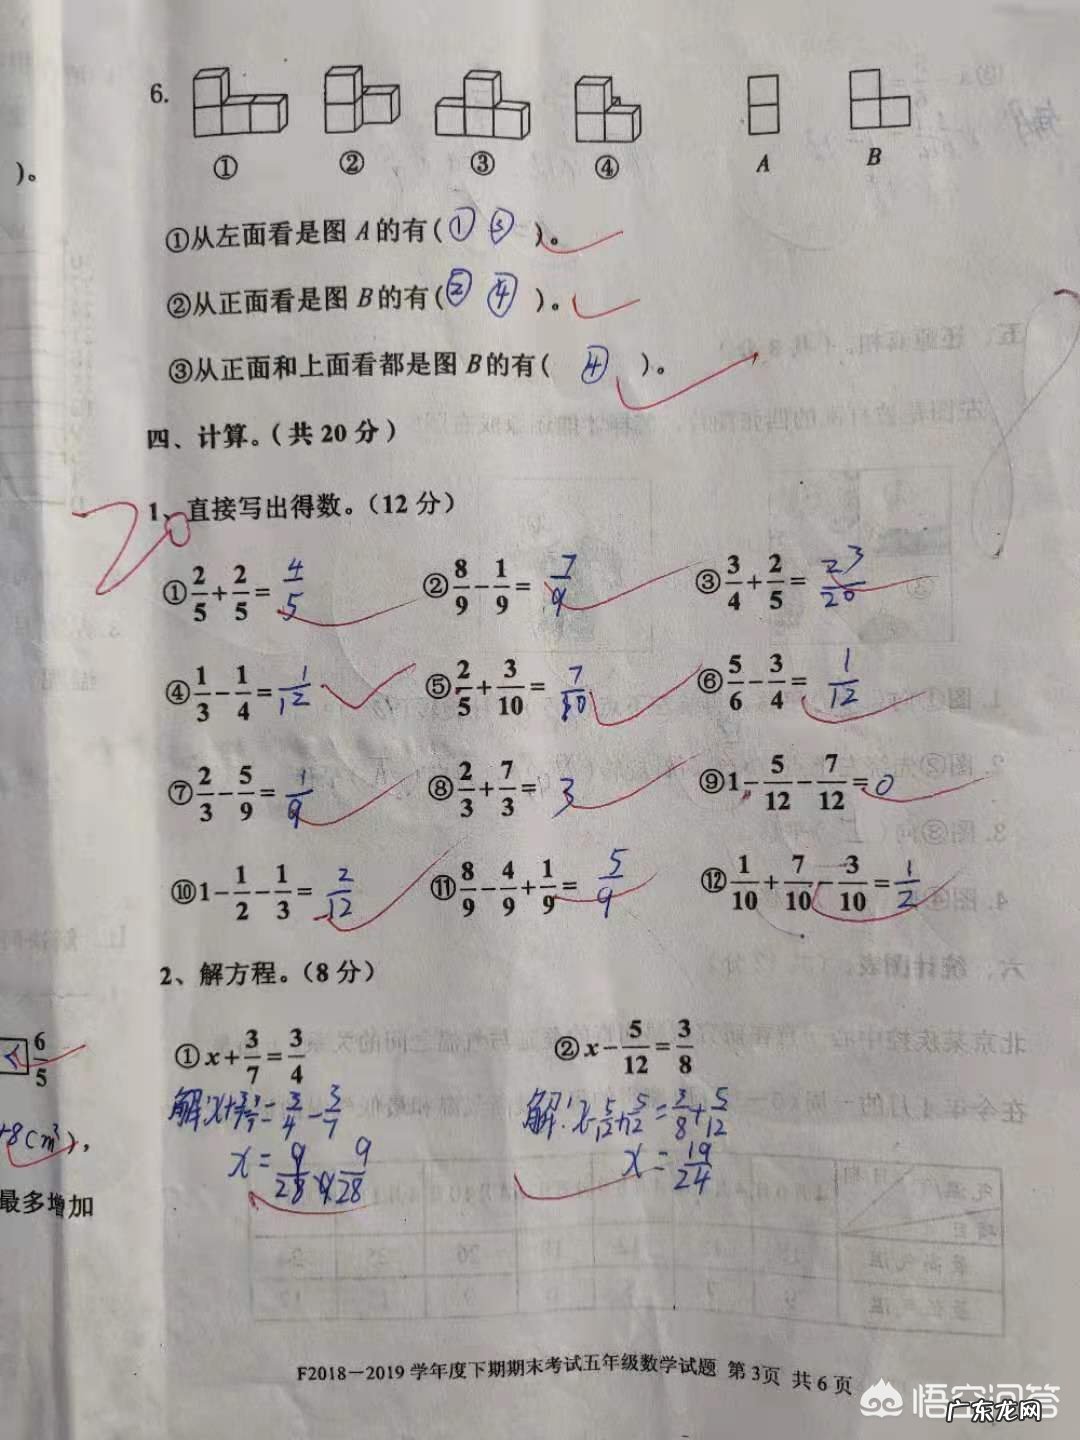 6.
① ② ③ ④ A B
)。
①从左面看是图 A 的有(① ③ )。
②从正面看是图 B 的有(② ④ )。
③从正面和上面看都是图 B 的有( ④ )。
四、计算。(共 20 分)
20
1、直接写出得数。(12 分)
①2/5+2/5=4/5 ②8/9-1/9=7/9 ③3/4+2/5=23/20
④1/3-1/4=1/12 ⑤2/5+3/10=7/10 ⑥5/6-3/4=1/12
⑦2/3-5/9=1/9 ⑧2/3+7/3=3 ⑨1-5/12-7/12=0
⑩1-1/2-1/3=2/12 ⑪8/9-4/9+1/9=5/9 ⑫1/10+7/10-3/10=1/2
2、解方程。(8 分)
①x+3/7=3/4 ②x-5/12=3/8
解:x+3/7-3/7=3/4-3/7 解:x-5/12+5/12=3/8+5/12
x=9/28 9/28 x=19/24
< 6/5
+8(m³),
最多增加
F2018-2019 学年度下期期末考试五年级数学试题 第 3页 共 6 页
悟空问答
广东龙网